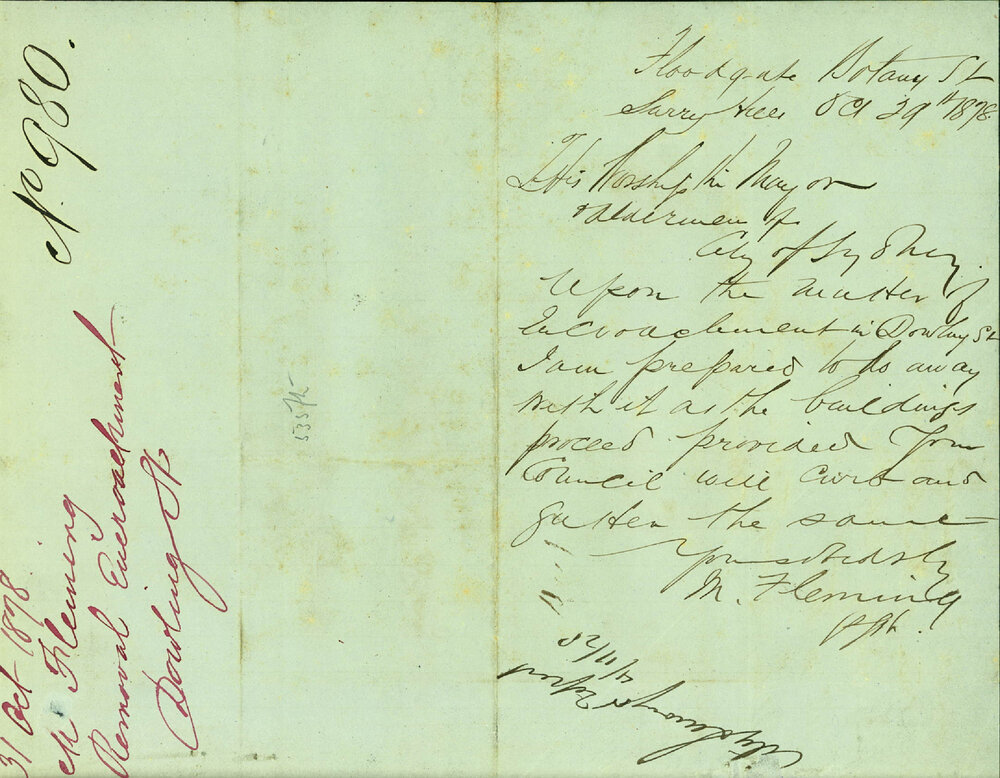 Floodgate Botany St
Surry Hills Oct 29th 1878
To His Worship the Mayor
& Aldermen of
City of Sydney.
Upon the matter of
Encroachment in Dowling St
I am prepared to do away
with it as the buildings
proceed provided Your
Council will Curb and
gutter the same
Yours obediently
M. Fleming
City Surveyor
4/11/78
No 980.
31 Oct 1878
M Fleming
Removal Encroachment
Dowling St